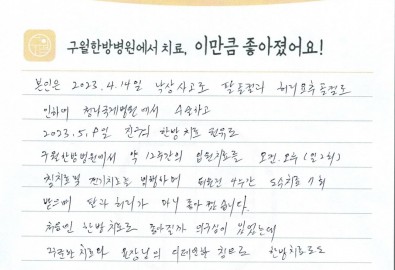 구월한방병원에서 치료, 이만큼 좋아졌어요!
본인은 2023.4.14일 낙상사고로 팔골절과 허리요추골절로
인하여 청라국제병원에서 수술하고
2023.5.9일 진료 한방치료 원유로
구월한방병원에서 약 12주간의 입원치료를 오전.오후 (일2회)
침치료및 전기치료를 병행하며 퇴원전 4주간 도수치료 7회
받으며 팔과 허리가 많이 좋아졌습니다.
처음엔 한방치료로 좋아질까 의구심이 있었는데
꾸준한 치료와 원장님의 침으로 한방치료로도